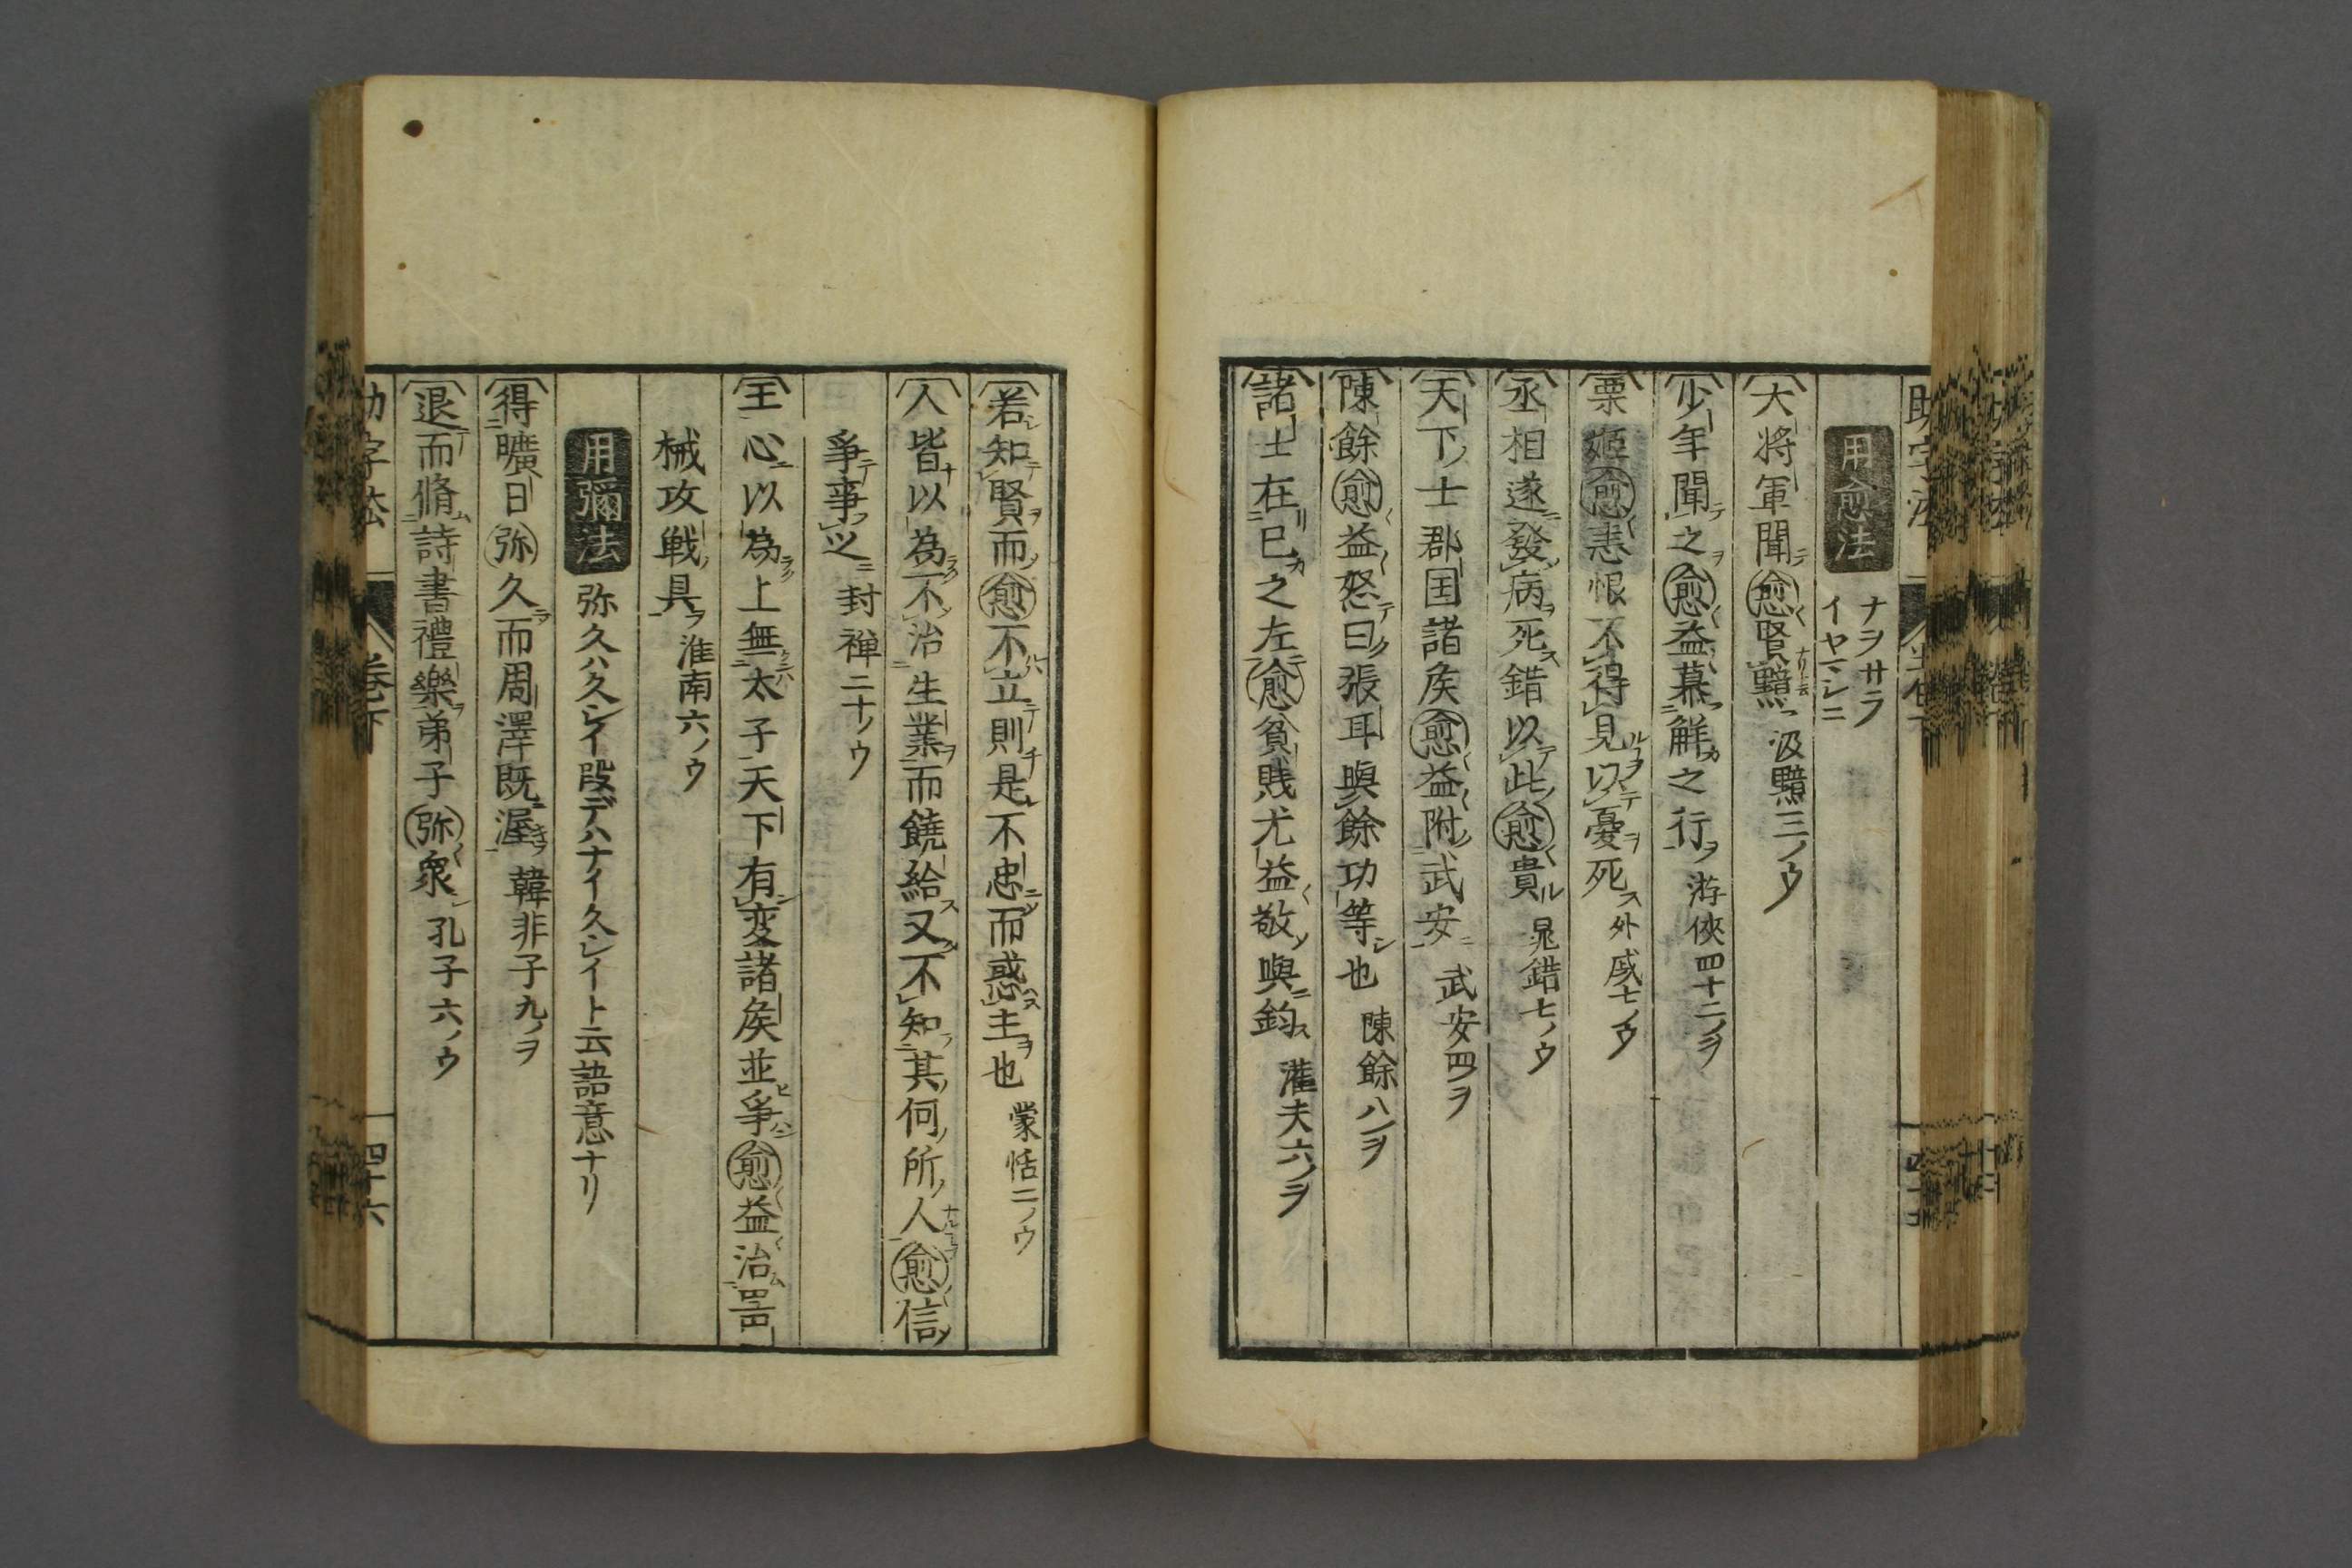 用愈法 ナヲサラ イヤマシニ
大将軍聞愈賢黯 汲黯三ノウ
少年聞之愈益慕解之行 游俠四十二ノヲ
栗姫愈恚恨不得見以憂死 外戚七ノウ
丞相遂發病死錯以此愈貴 晁錯七ノウ
天下士郡国諸矦愈益附武安 武安四ノヲ
陳餘愈益怒曰張耳與餘功等也 陳餘八ノヲ
諸士在已之左愈貧賎尤益敬與鈞 灌夫六ノヲ
若知賢而愈不立則是不忠而惑主也 蒙恬二ノウ
人皆以為不治生業而饒給又不知其何所人愈信
爭事之 封禅二十ノウ
王心以為上無太子天下有変諸矦並爭愈益治噐
械攻戦具 淮南六ノウ
用彌法 弥久ハ久シイ段デハナイ久シイト云語意ナリ
得曠日弥久而周澤既渥 韓非子九ノヲ
退而脩詩書禮樂弟子弥衆 孔子六ノウ
巻下
四十六